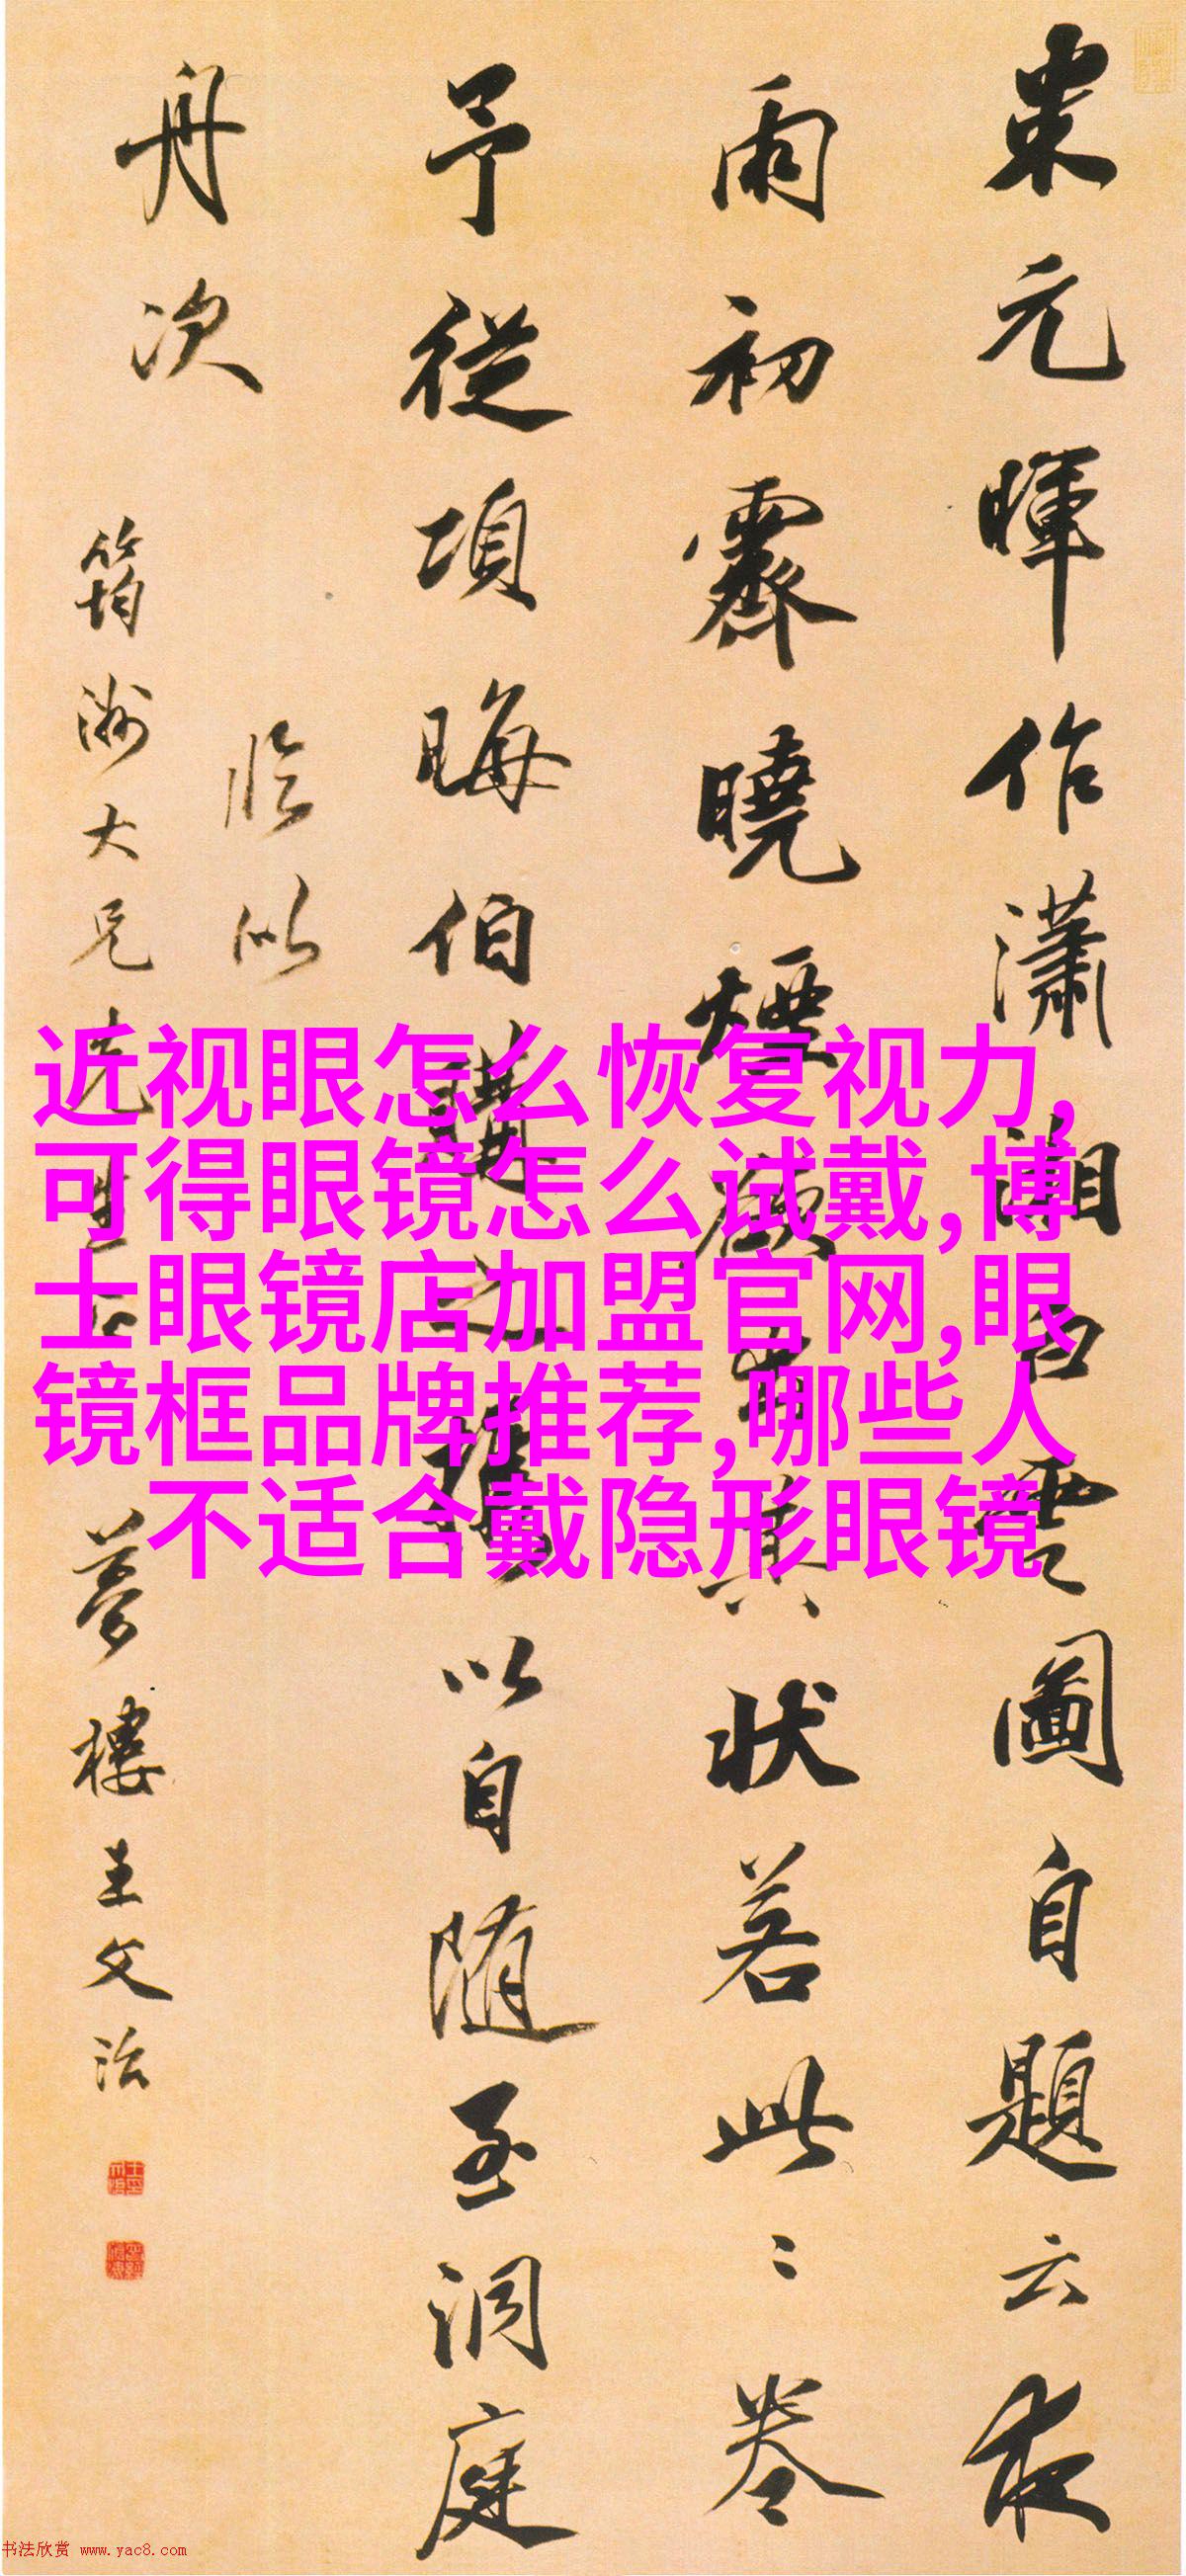 米元暉作瀟湘白雲圖自題云夜
雨初霽曉煙欲出其状若此此卷
予從項晦伯購之携以自随至洞庭
舟次
臨似
筠洲大兄先生正
夢樓王文治
近视眼怎么恢复视力,
可得眼镜怎么试戴,博
士眼镜店加盟官网,眼
镜框品牌推荐,哪些人
不适合戴隐形眼镜
书法欣赏 www.yac8.com